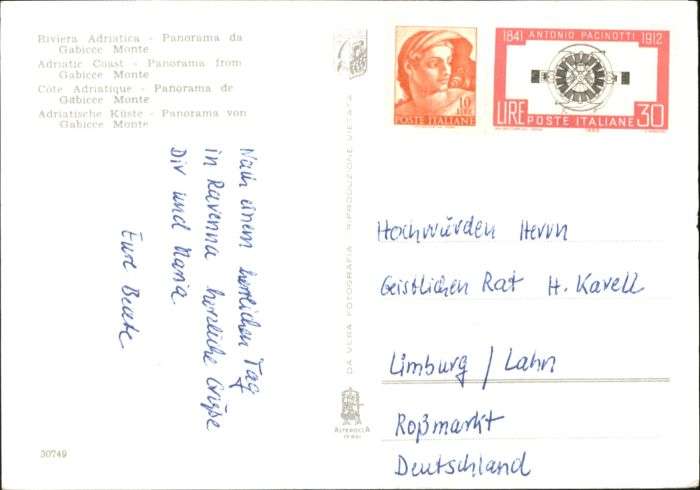 Riviera Adriatica - Panorama da
Gabicce Monte
Adriatic Coast - Panorama from
Gabicce Monte
Côte Adriatique - Panorama de
Gabicce Monte
Adriatische Küste - Panorama von
Gabicce Monte
Nach einem herrlichen Tag
in Ravenna herzliche Grüße
Dir und Maria
Eure Beate
30749
DA VERA FOTOGRAFIA RIPRODUZIONE VIETATA
ALTEROCCA
TERNI
10
POSTE ITALIANE
1841 ANTONIO PACINOTTI 1912
LIRE POSTE ITALIANE 30
Hochwürden Herrn
Geistlichen Rat H. Karell
Limburg / Lahn
Roßmarkt
Deutschland